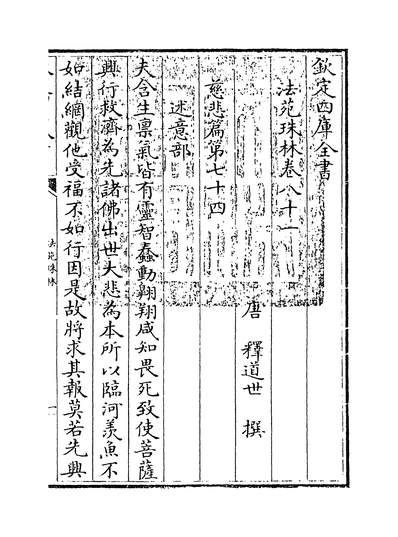 欽定四庫全書
法苑珠林卷八十一
唐 釋道世 撰
慈悲篇第七十四
述意部
夫含生禀氣皆有靈智蠢動翾翔咸知畏死致使菩薩
興行救濟為先諸佛出世大悲為本所以臨河羡魚不
如結網觀他受福不如行因是故將求其報莫若先興
法苑珠林
一